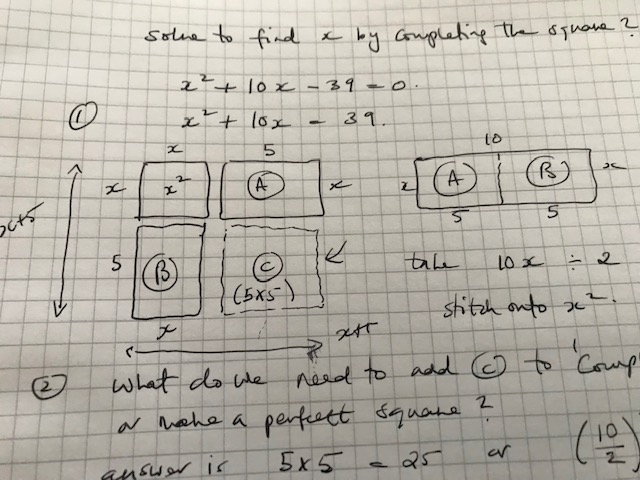 Solve to find x by completing the square?
x² + 10x - 39 = 0.
x² + 10x = 39.
①
x 5
x x² Ⓐ x
5 Ⓑ Ⓒ
(5x5)
x
x+5
10
x Ⓐ Ⓑ x
5 5
take 10x ÷ 2
stitch onto x².
② What do we need to add Ⓒ to 'Comp
or make a perfect square?
answer is 5x5 = 25 or (10/2)